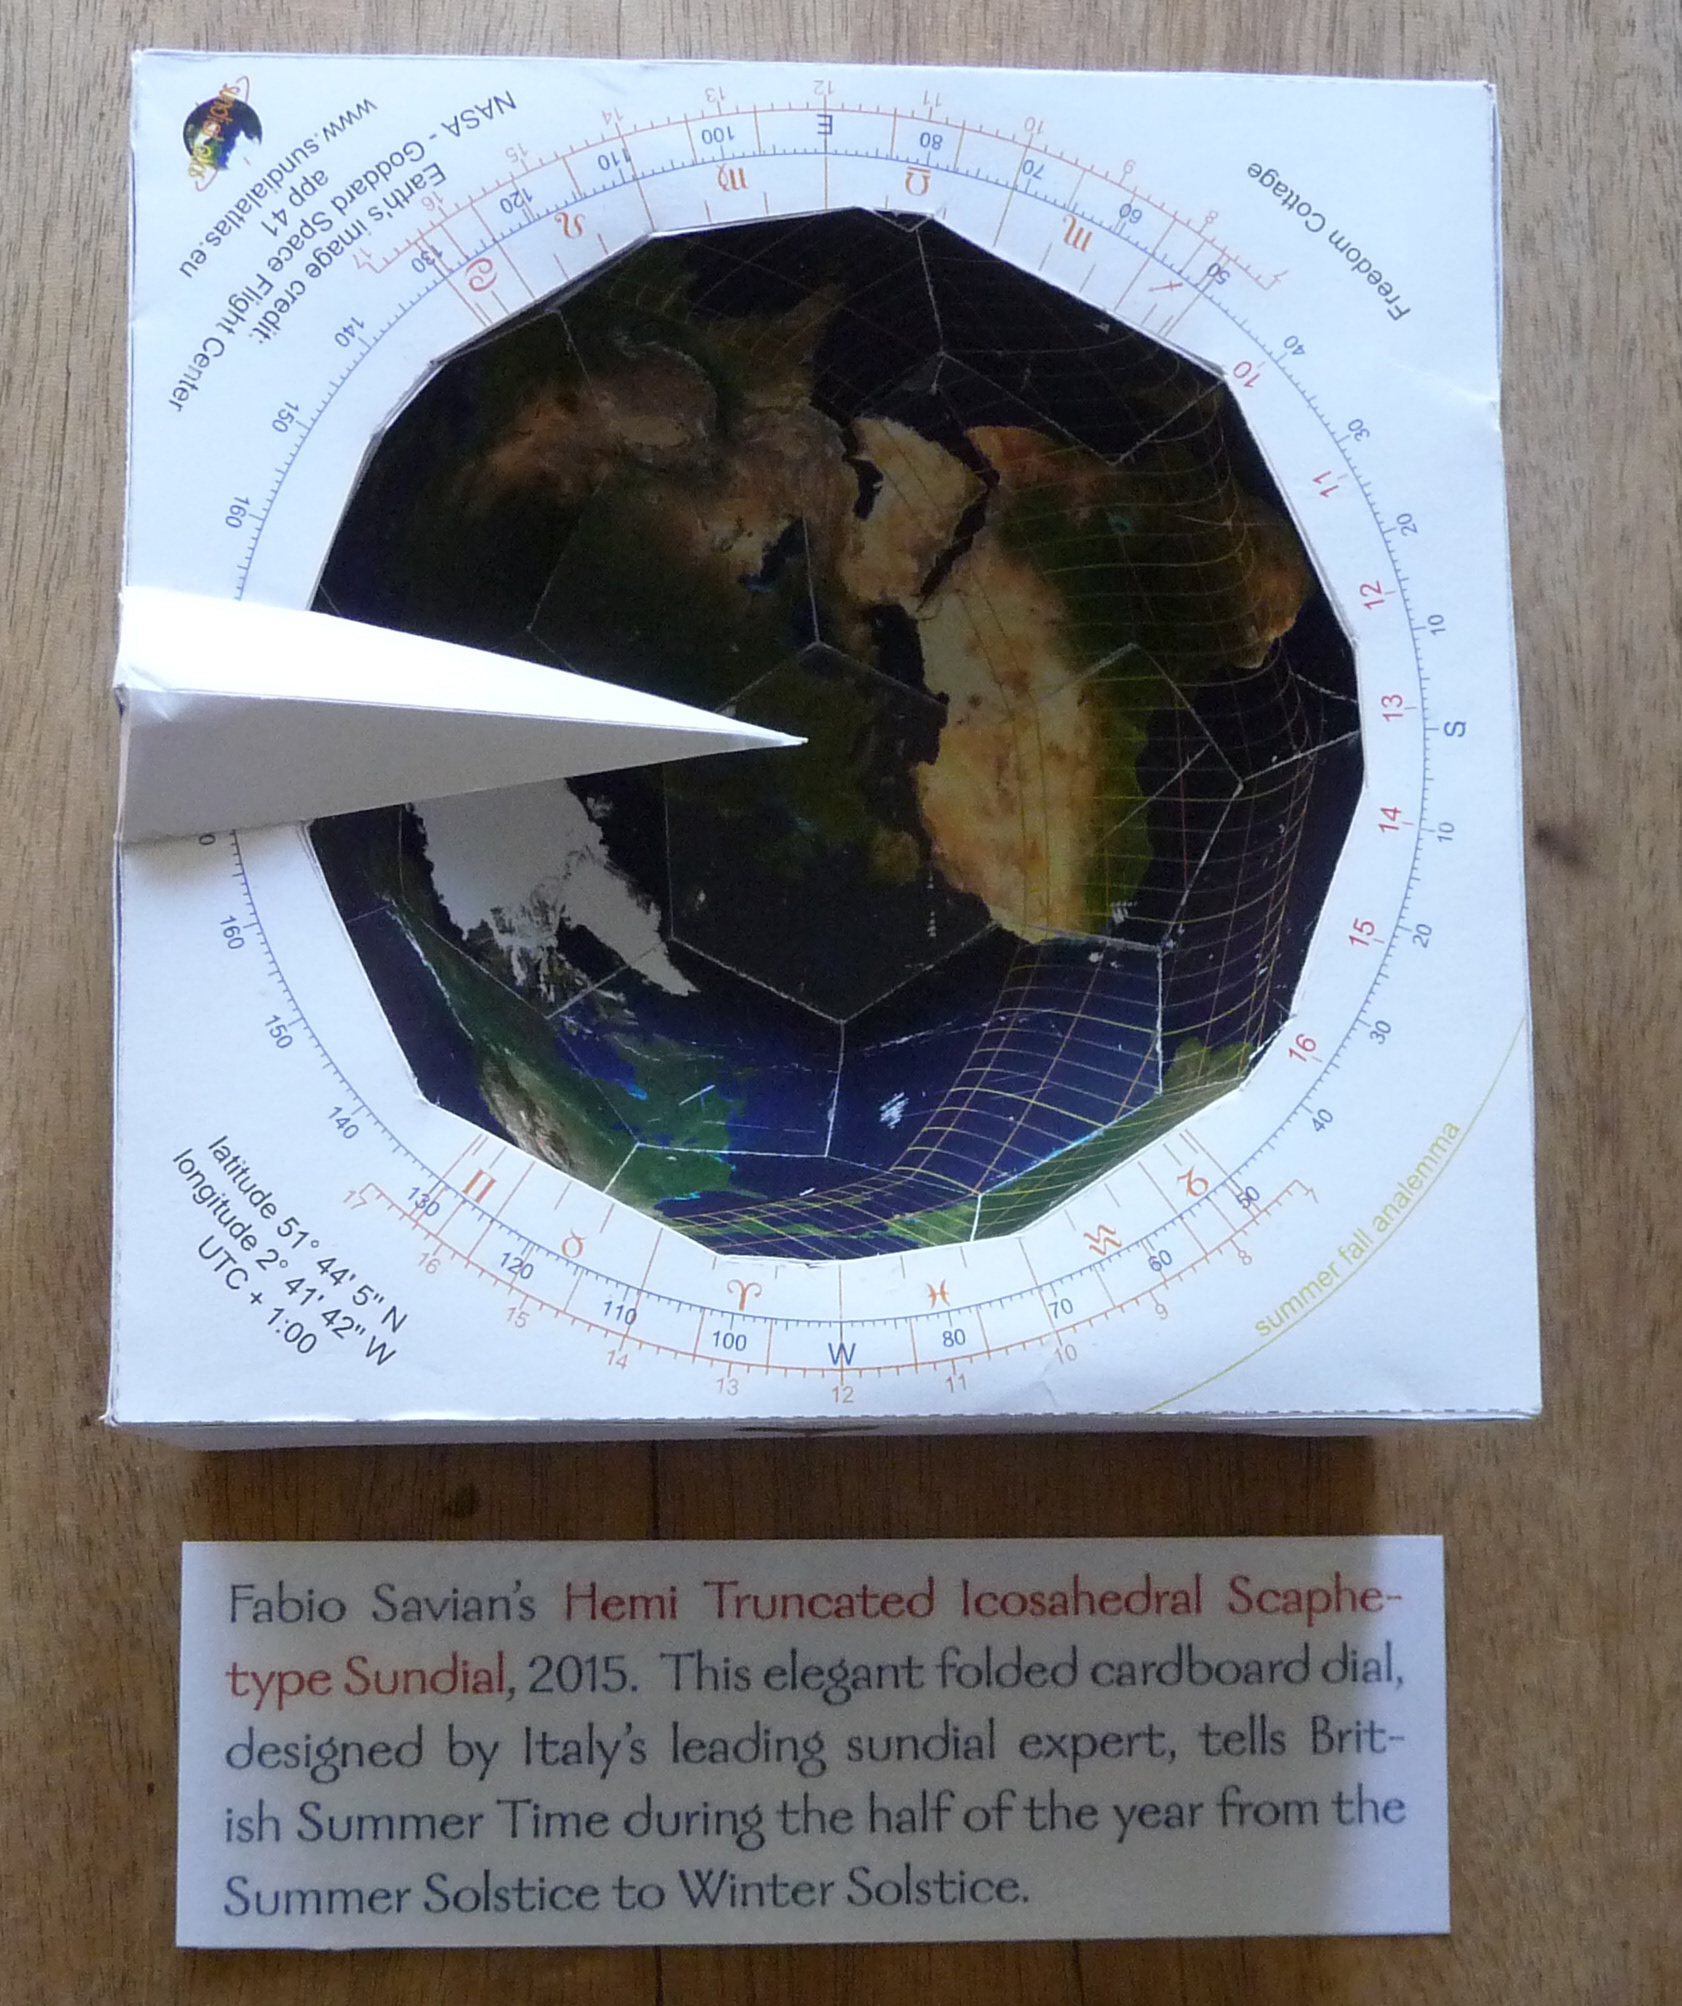 sundial atlas
www.sundialatlas.eu
app 41
Earth's image credit:
NASA - Goddard Space Flight Center
Freedom Cottage
17 16 15 14 13 12 11 10 9 8 7
130 120 110 100 E 80 70 60 50
♋ ♌ ♍ ♎ ♏ ♐
140 150 160
40 30 20 10 S 10 20 30 40
10 11 12 13 14 15 16
0 160 150 140
♊ ♉ ♈ ♓ ♒ ♑
130 120 110 100 W 80 70 60 50
17 16 15 14 13 12 11 10 9 8 7
latitude 51° 44' 5" N
longitude 2° 41' 42" W
UTC + 1:00
summer fall analemma
Fabio Savian's Hemi Truncated Icosahedral Scaphe-
type Sundial, 2015. This elegant folded cardboard dial,
designed by Italy's leading sundial expert, tells Brit-
ish Summer Time during the half of the year from the
Summer Solstice to Winter Solstice.